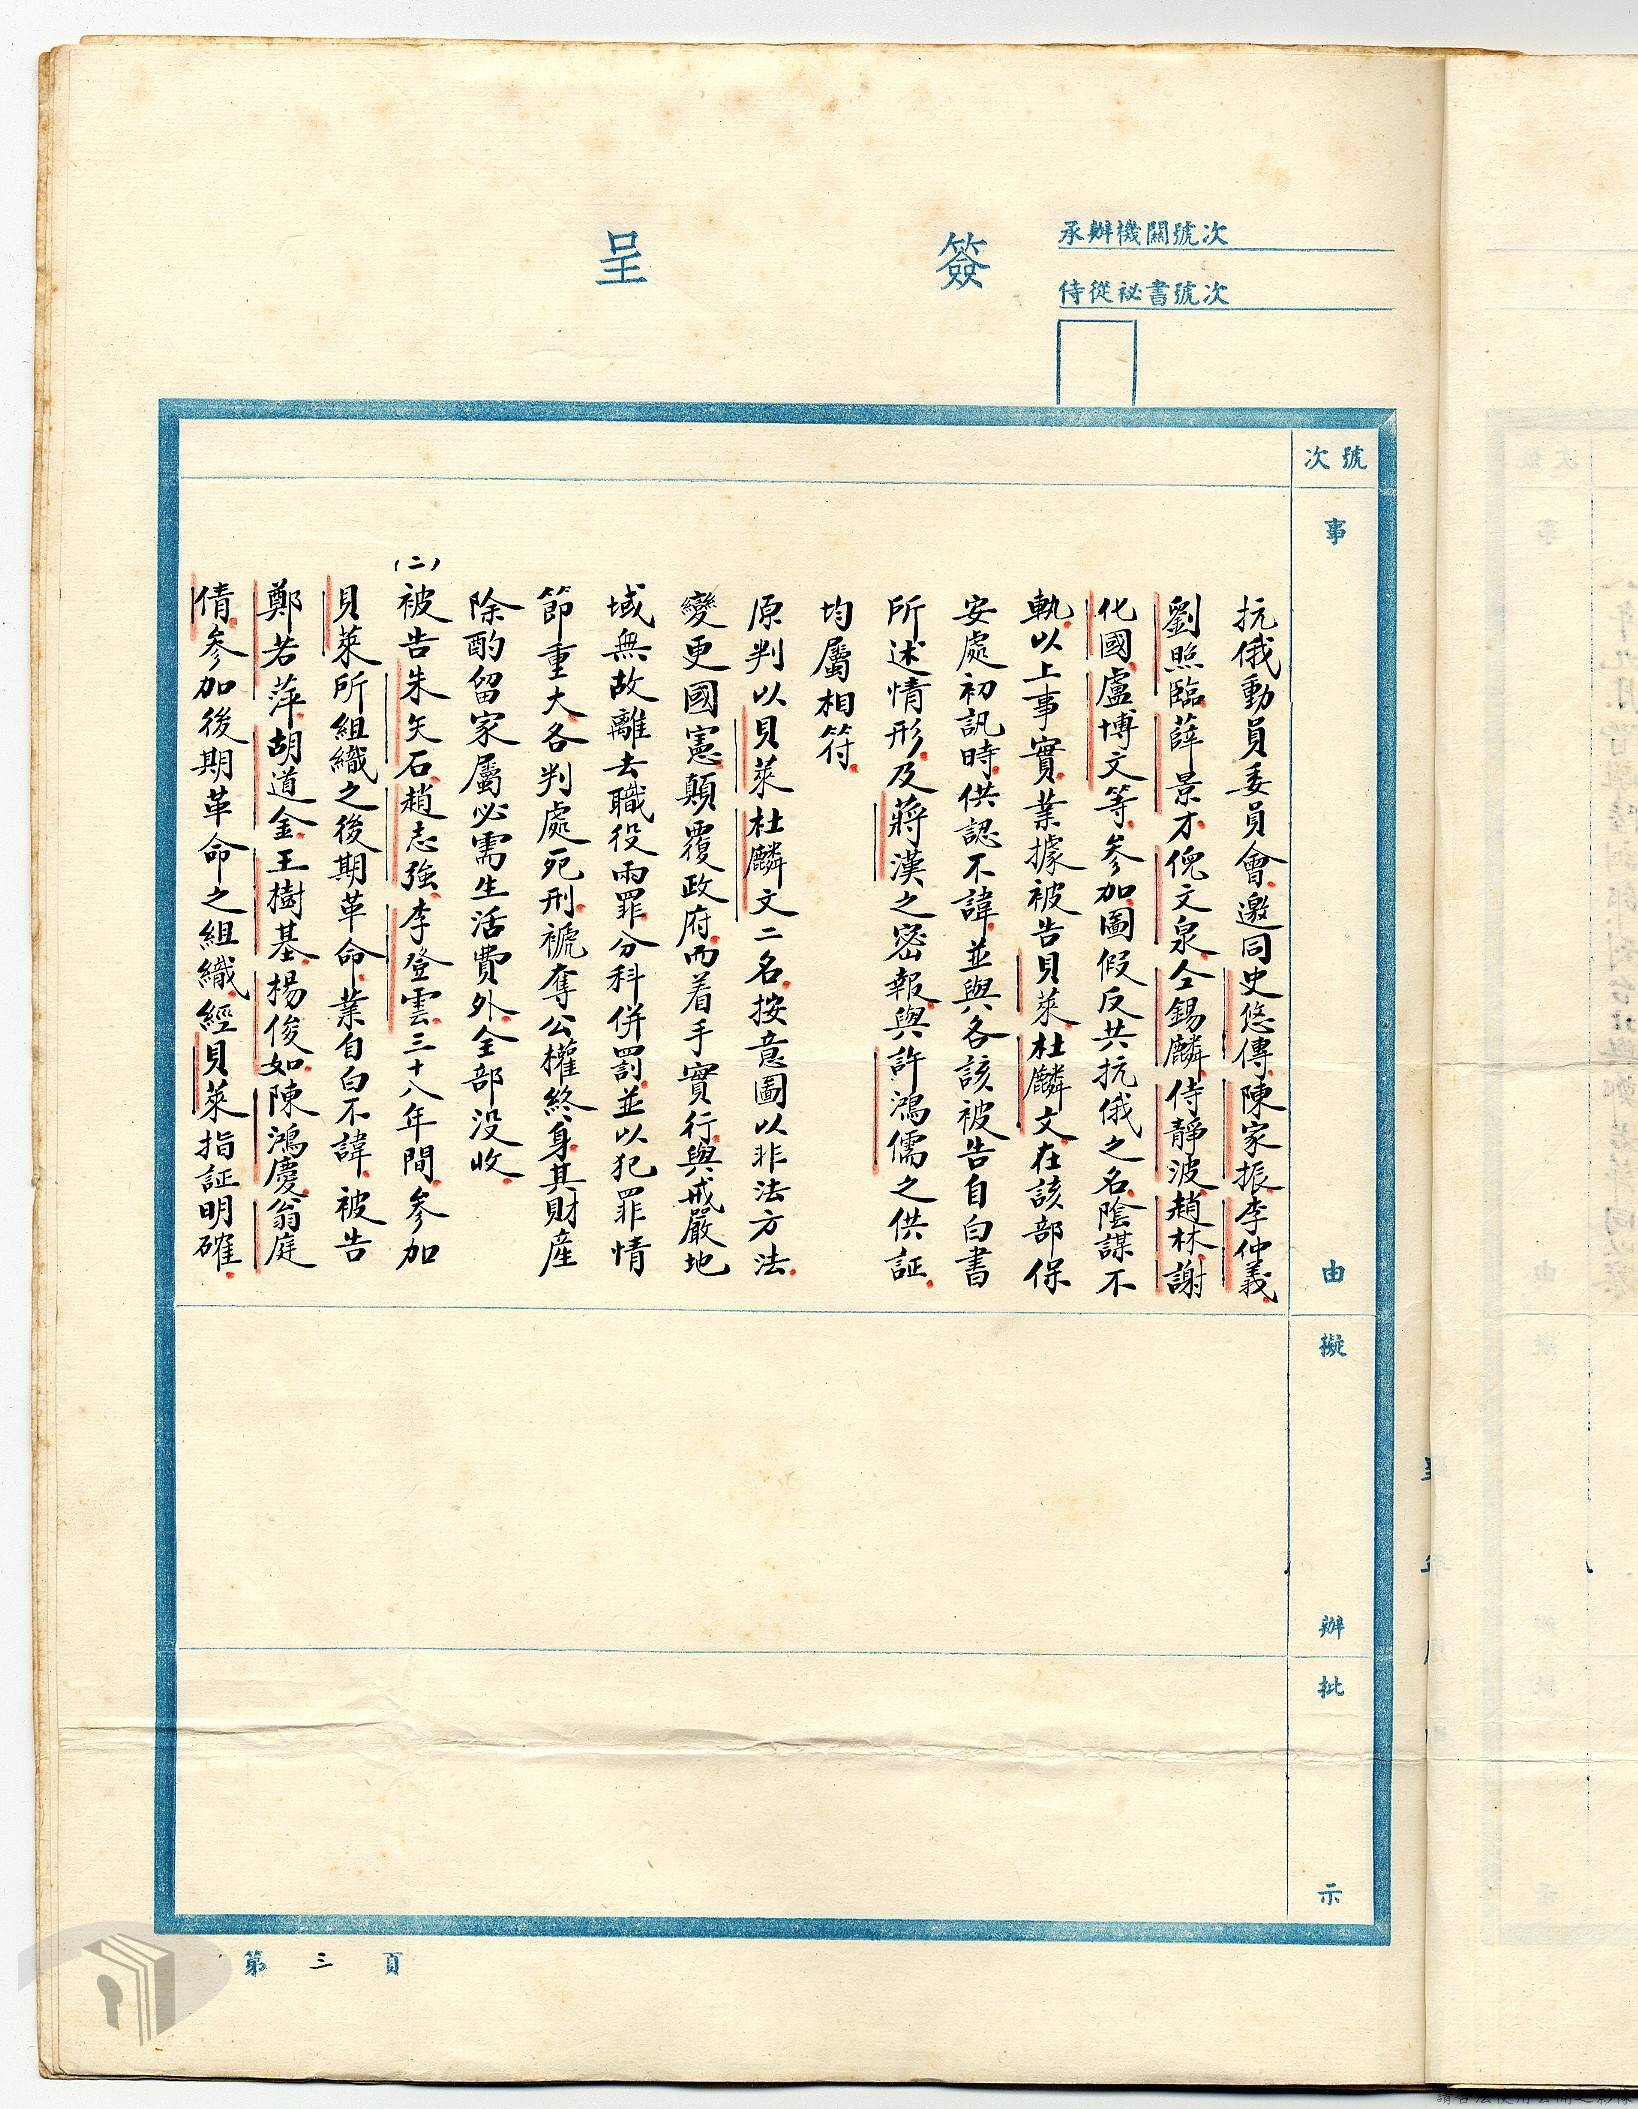 簽呈
承辦機關號次
侍從祕書號次
號次
事由
擬辦
批示
抗俄動員委員會.邀同史悠傳.陳家振.李仲義.
劉照臨.薛景才.倪文泉.仝錫麟.侍靜波.趙林.謝
化國.盧博文等.參加圖假反共抗俄之名.陰謀不
軌.以上事實.業據被告貝萊.杜麟文.在該部保
安處初訊時.供認不諱.並與各該被告自白書
所述情形.及蔣漢之密報.與許鴻儒之供証.
均屬相符.
原判以貝萊杜麟文二名.按意圖以非法方法.
變更國憲顛覆政府.而着手實行.與戒嚴地
域無故離去職役兩罪.分科併罰.並以犯罪情
節重大各判處死刑.褫奪公權終身.其財產
除酌留家屬必需生活費外.全部没收.
(二)被告朱矢石.趙志強.李登雲.三十八年間.參加
貝萊所組織之後期革命.業自白不諱.被告
鄭若萍.胡道金.王樹基.楊俊如.陳鴻慶.翁庭
倩.參加後期革命之組織.經貝萊指証明確.
第三頁